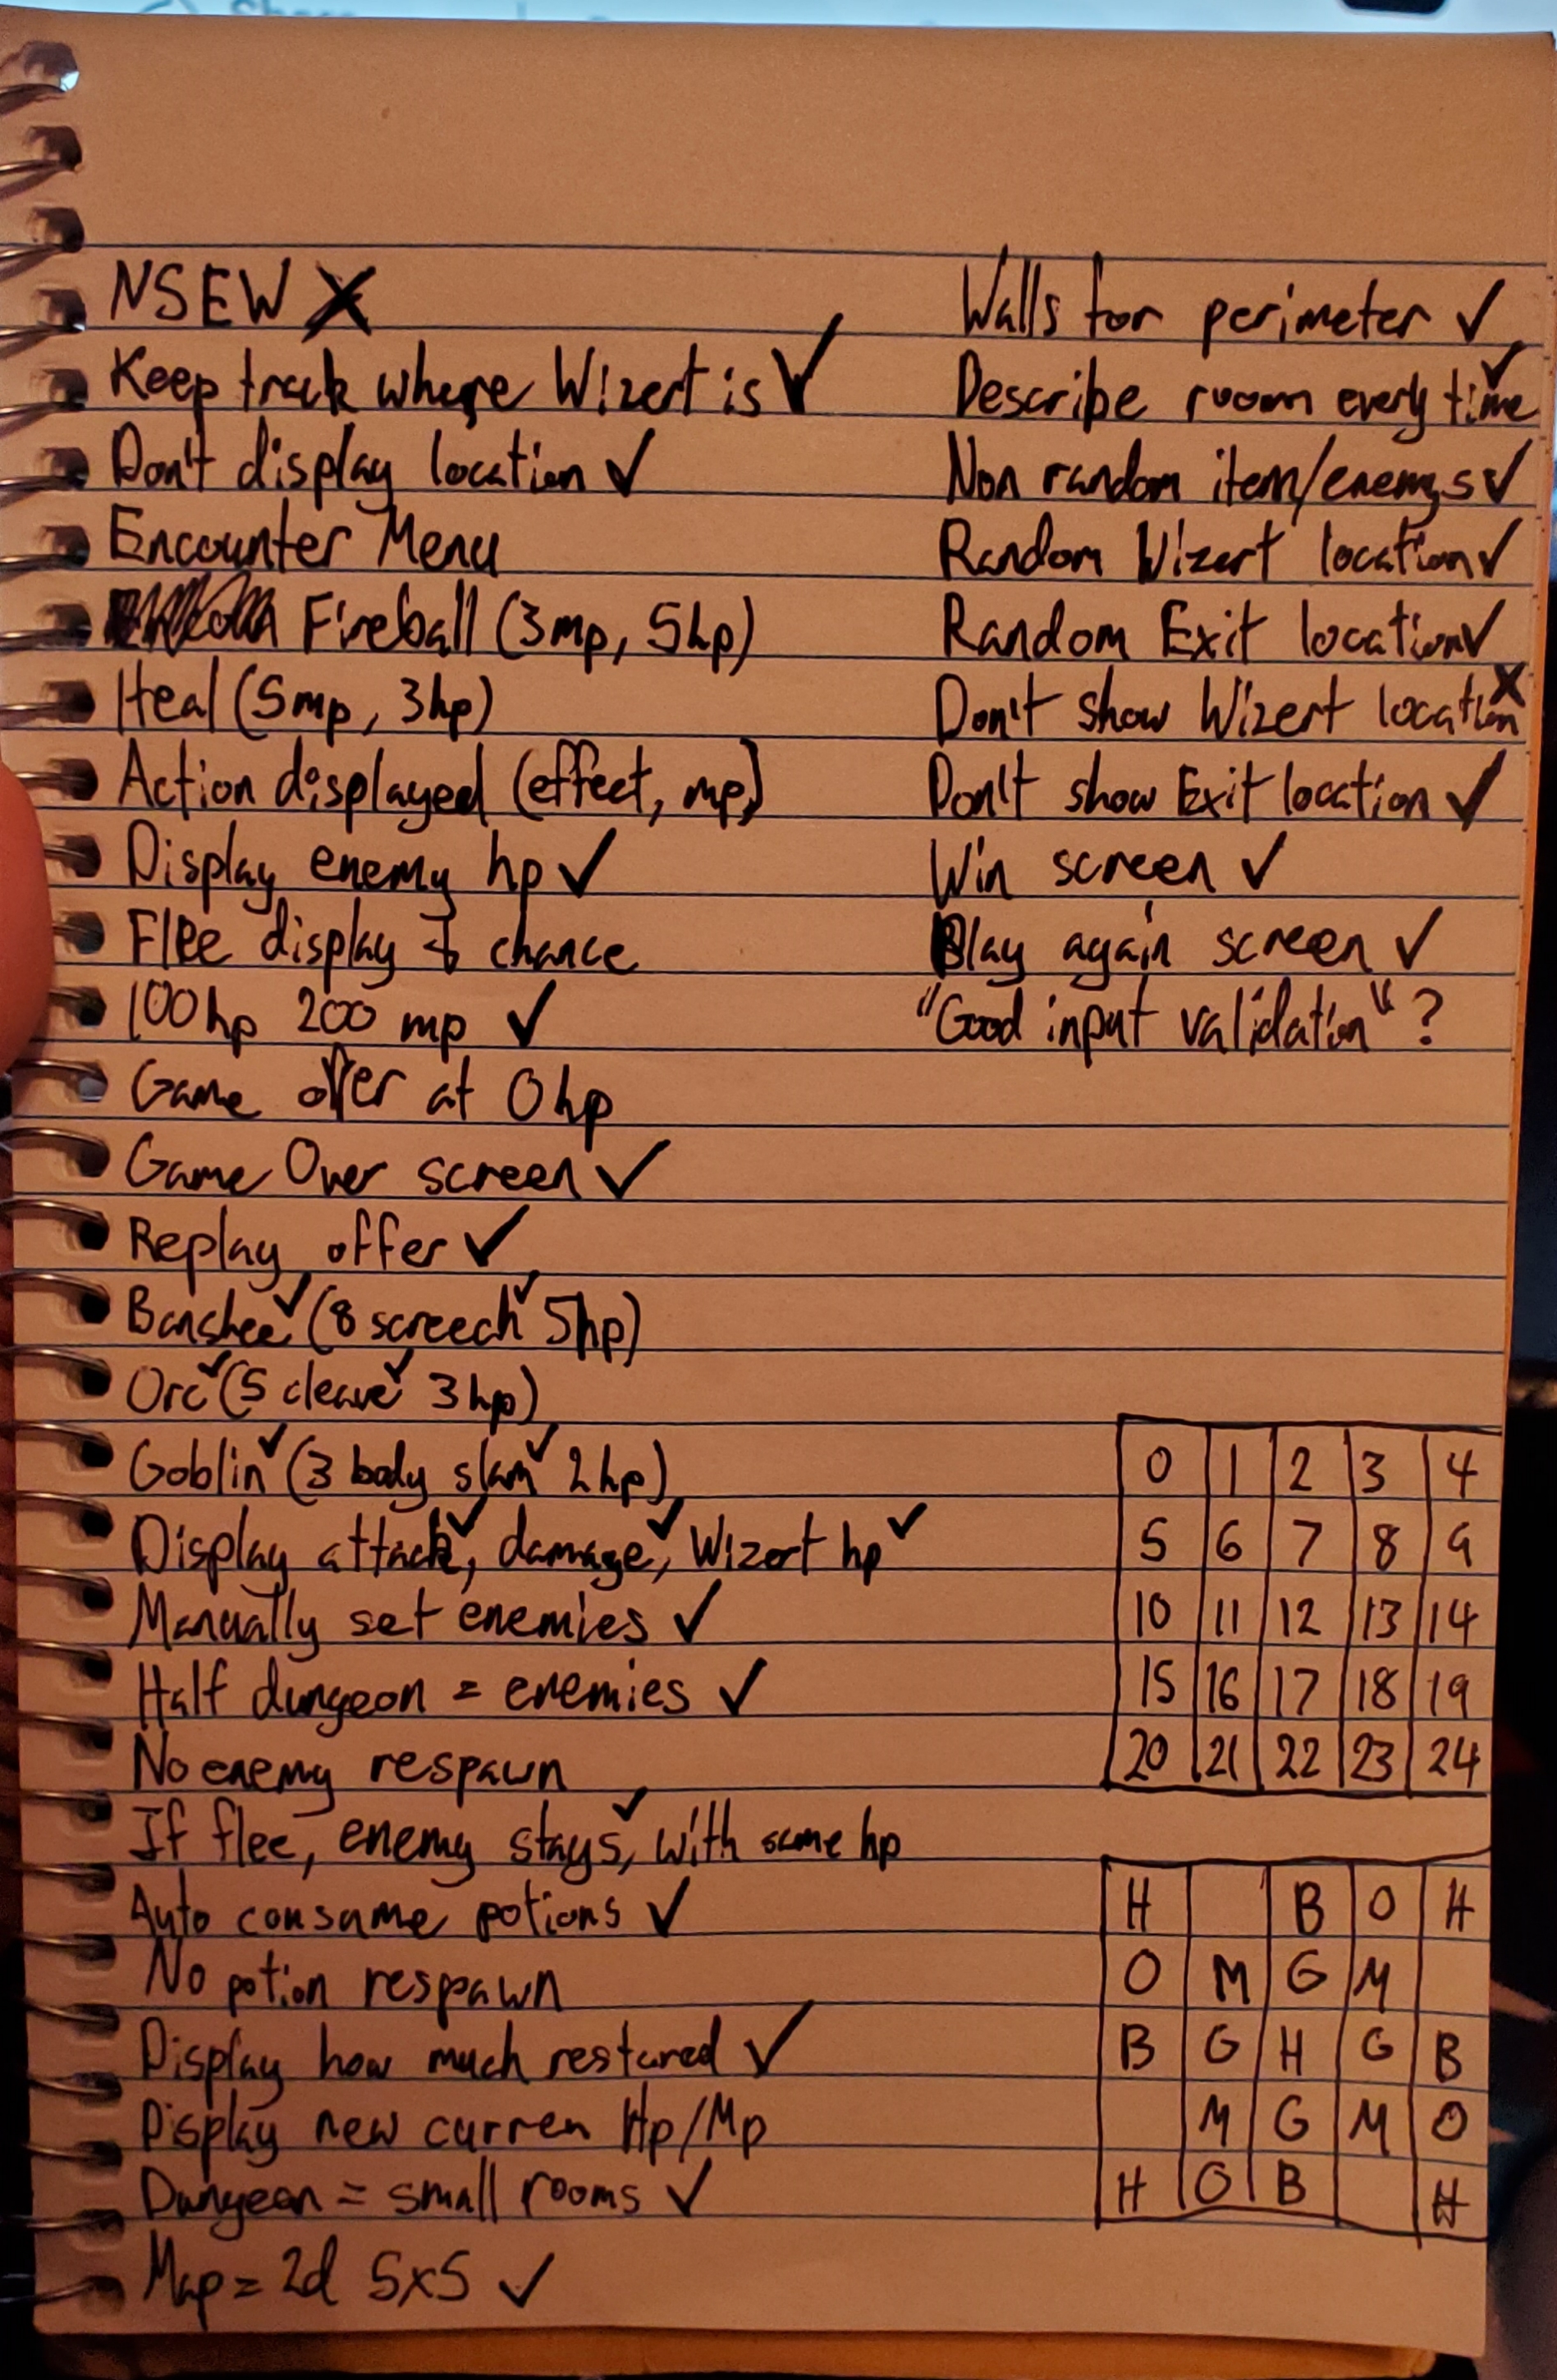 NSEW X
Keep track where Wizert is ✓
Don't display location ✓
Encounter Menu
Fireball (3mp, 5hp)
Heal (5mp, 3hp)
Action displayed (effect, mp)
Display enemy hp ✓
Flee display + chance
100hp 200 mp ✓
Game over at 0hp
Game Over screen ✓
Replay offer ✓
Banshee ✓ (8 screech ✓ 5hp)
Orc ✓ (5 cleave ✓ 3hp)
Goblin ✓ (3 body slam ✓ 2hp)
Display attack ✓, damage ✓, Wizert hp ✓
Manually set enemies ✓
Half dungeon = enemies ✓
No enemy respawn
If flee, enemy stays ✓, with same hp
Auto consume potions ✓
No potion respawn
Display how much restored ✓
Display new curren Hp/Mp
Dungeon = small rooms ✓
Map = 2d 5x5 ✓
Walls for perimeter ✓
Describe room every time ✓
Non random item/enemys ✓
Random Wizert location ✓
Random Exit location ✓
Don't show Wizert location X
Don't show Exit location ✓
Win screen ✓
Play again screen ✓
"Good input validation" ?
0 1 2 3 4
5 6 7 8 9
10 11 12 13 14
15 16 17 18 19
20 21 22 23 24
H B O H
O M G M
B G H G B
M G M O
H O B H